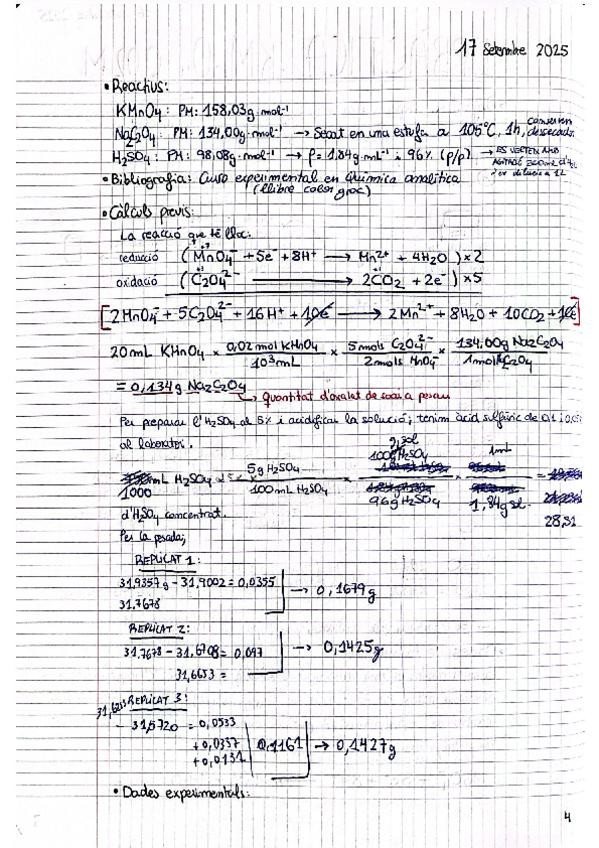 17 Setembre 2025
• Reactius:
KMnO₄: PM: 158,03g·mol⁻¹
Na₂C₂O₄: PM: 134,00g·mol⁻¹ → Secat en una estufa a 105°C, 1h,
H₂SO₄: PM: 98,08g·mol⁻¹ → ρ = 1,84g·mL⁻¹ i 96% (p/p)
• Bibliografia: Curso experimental en Química analítica
(llibre color groc)
• Càlculs previs:
La reacció que té lloc:
reducció (MnO₄⁻ + 5e⁻ + 8H⁺ → Mn²⁺ + 4H₂O) × 2
oxidació (C₂O₄²⁻ → 2CO₂ + 2e⁻) × 5
[2MnO₄⁻ + 5C₂O₄²⁻ + 16H⁺ + 10e⁻ → 2Mn²⁺ + 8H₂O + 10CO₂ + 10e⁻]
20 mL KMnO₄ × 0,02 mol KMnO₄ / 10³ mL × 5 mols C₂O₄²⁻ / 2 mols MnO₄⁻ × 134,00g Na₂C₂O₄ / 1 mol C₂O₄
= 0,134 g Na₂C₂O₄
→ Quantitat d'oxalat de sodi a pesar
Per preparar l'H₂SO₄ al 5% i acidificar la solució; tenim àcid sulfúric de
al laboratori.
1000 mL H₂SO₄ × 5g H₂SO₄ / 100 mL H₂SO₄ × 100g H₂SO₄ / 96g H₂SO₄ × 1mL / 1,84g sol. =
28,31
d'H₂SO₄ concentrat.
Per la pesada;
REPLICAT 1:
31,9357g - 31,9002 = 0,0355
31,7678
→ 0,1679g
REPLICAT 2:
31,7678 - 31,6708 = 0,097
31,6653 =
→ 0,1425g
REPLICAT 3:
- 31,5720 = 0,0533
+ 0,0357
+ 0,0131
0,1161 → 0,1427g
• Dades experimentals:
4